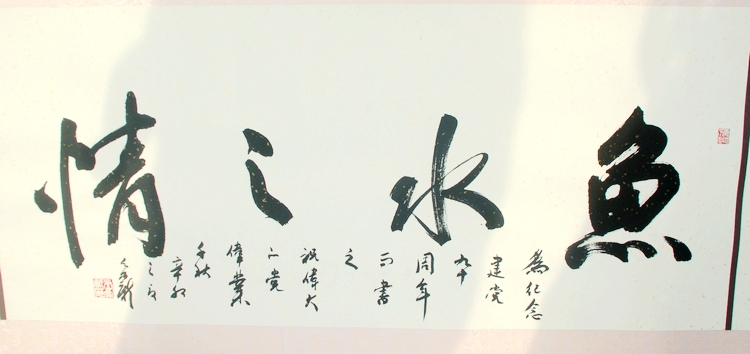 魚水之情
為紀念
建党
九十
周年
而書
之
祝偉大
的党
偉業
千秋
辛卯